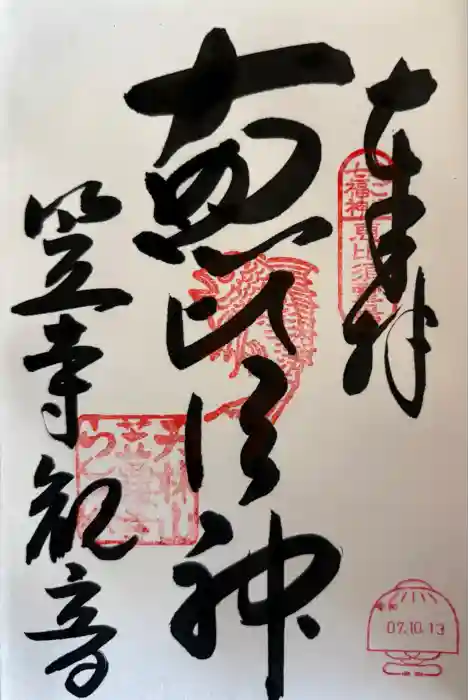 奉拝
七福神
恵比須
恵比須神
笠寺観音
令和
07.10.13